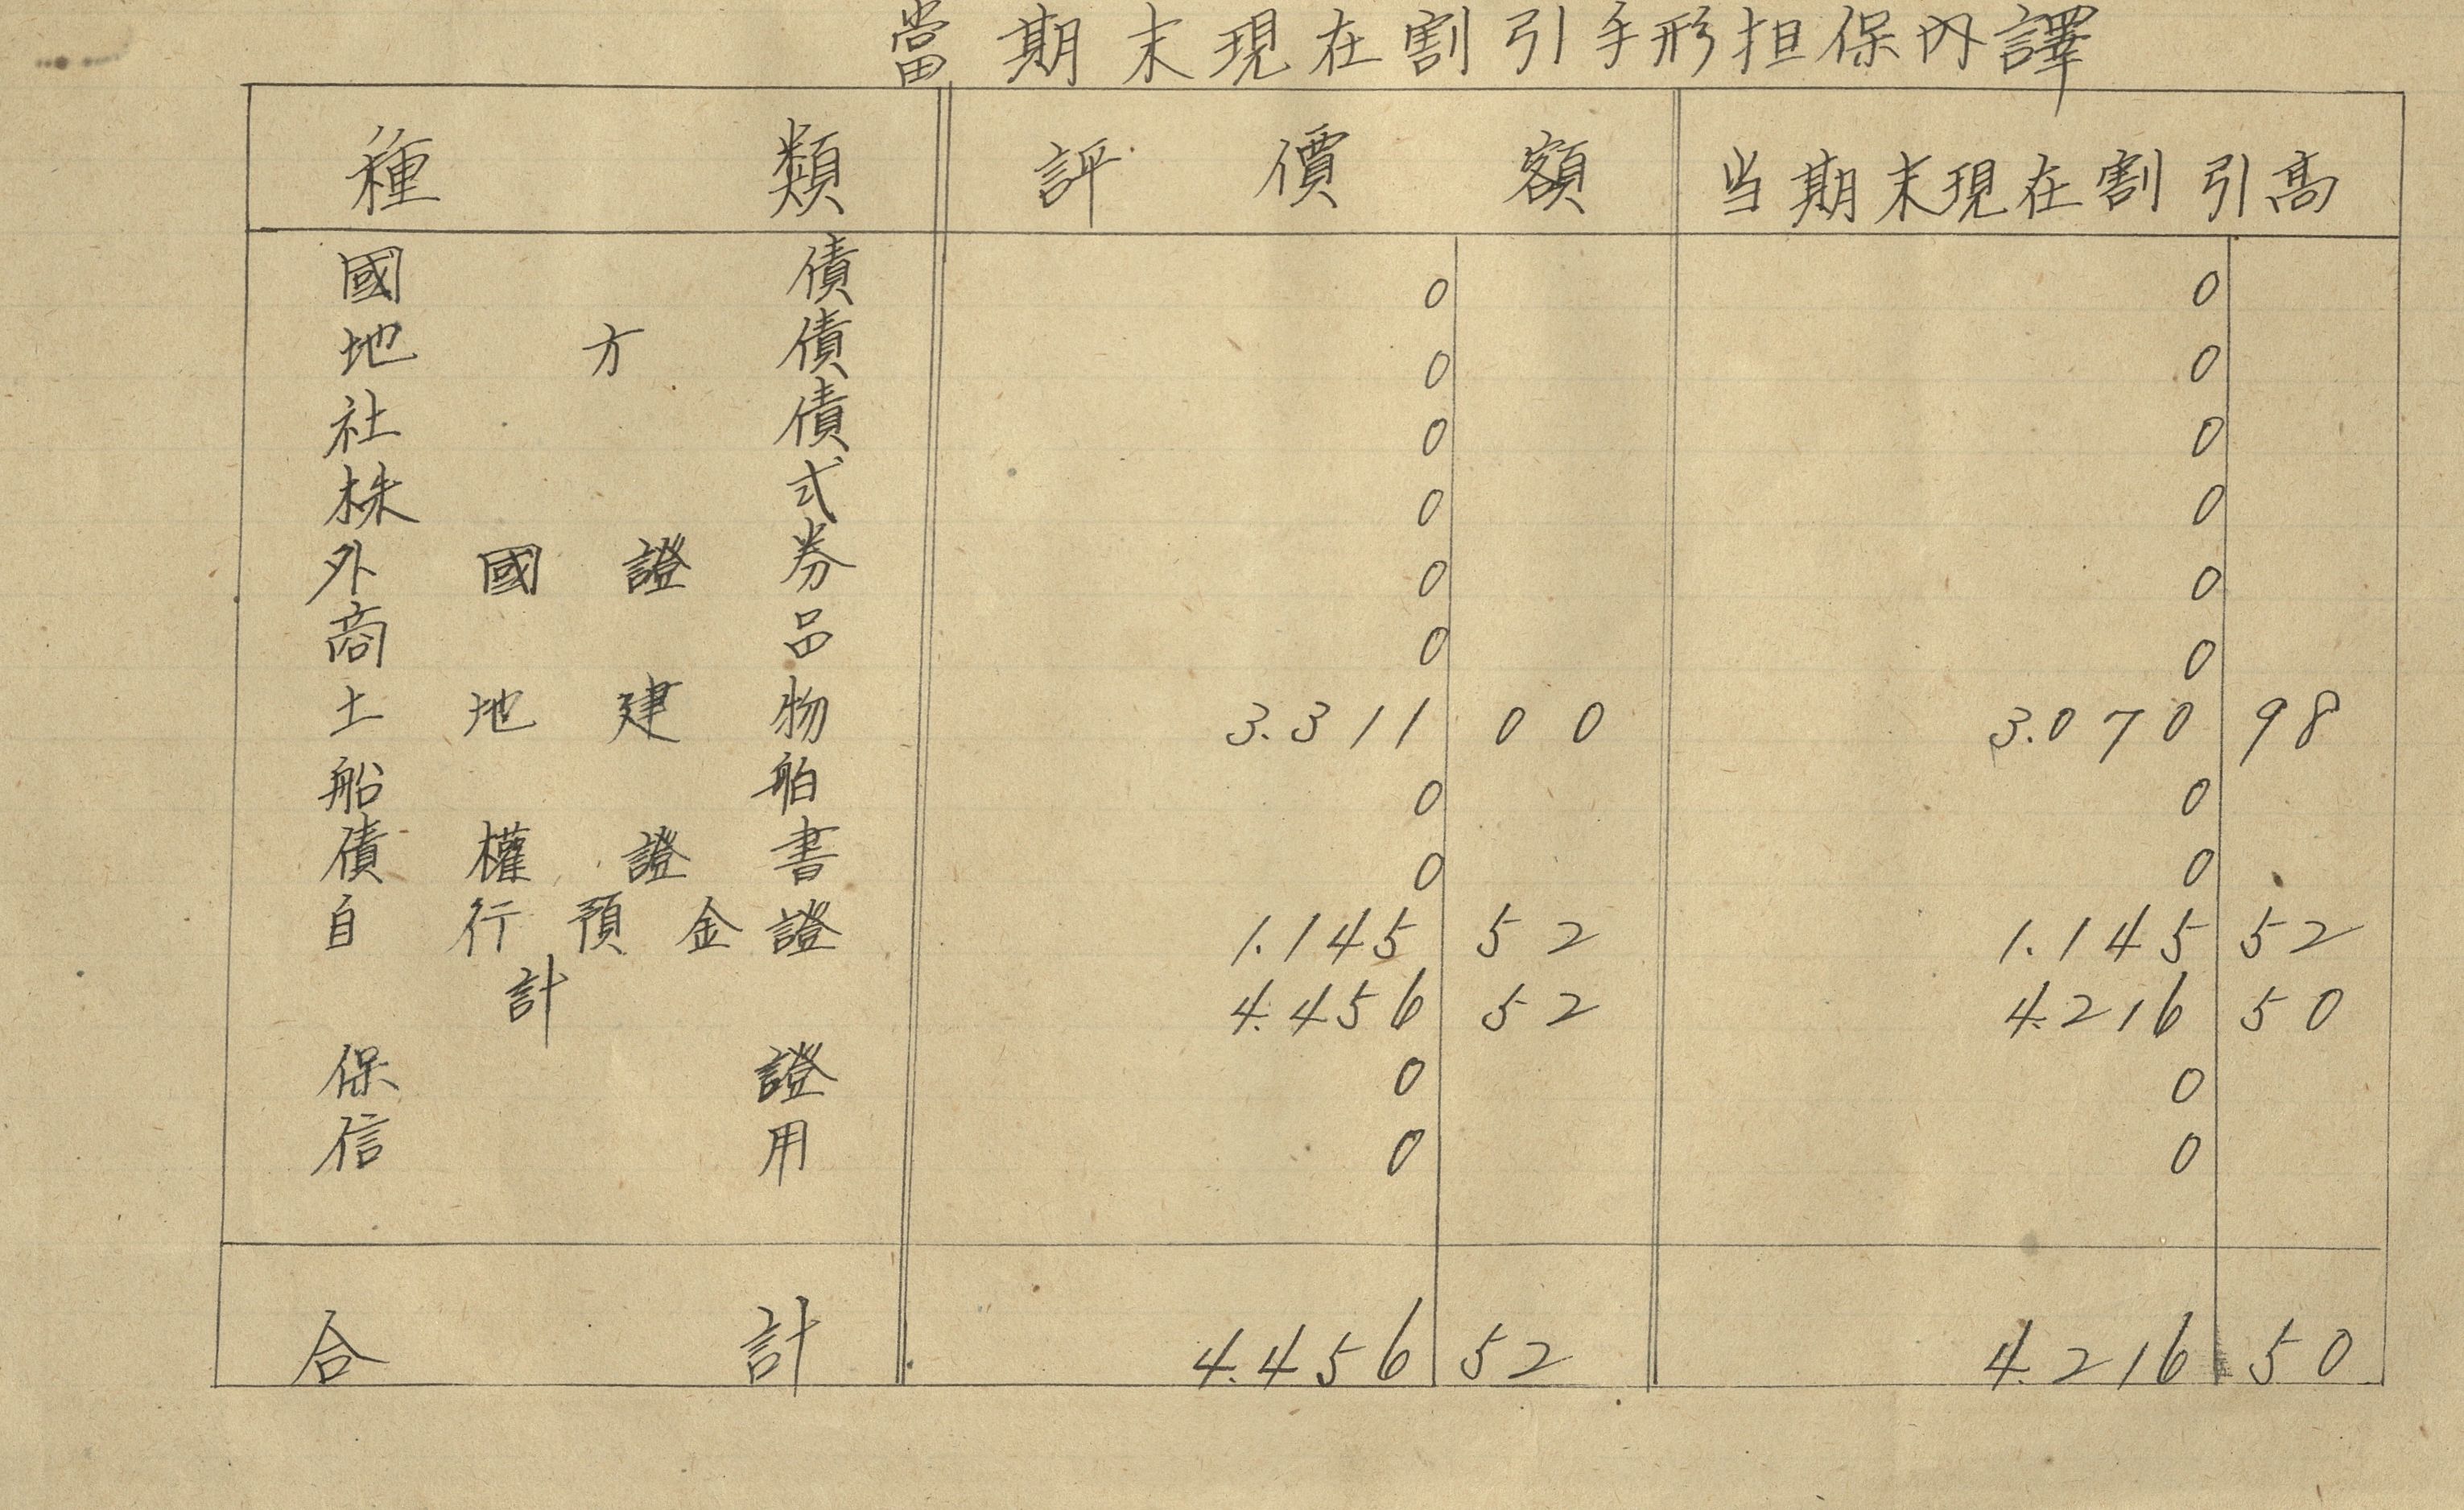 當期末現在割引手形担保内譯
種類 評價額 当期末現在割引高
國債 0 0
地方債 0 0
社債 0 0
株式 0 0
外國證券 0 0
商品 0 0
土地建物 3.311 00 3.070 98
船舶 0 0
債權證書 0 0
自行預金證 1.145 52 1.145 52
計 4.456 52 4.216 50
保證 0 0
信用 0 0
合計 4.456 52 4.216 50